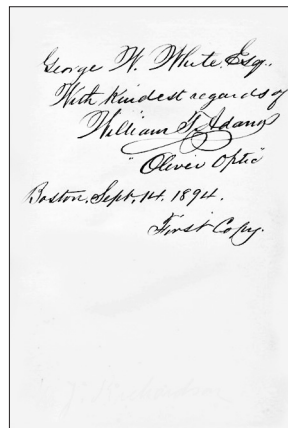 George W. White. Esq.,
With kindest regards of
William T. Adams
"Oliver Optic"
Boston, Sept. 14. 1894.
First Copy.